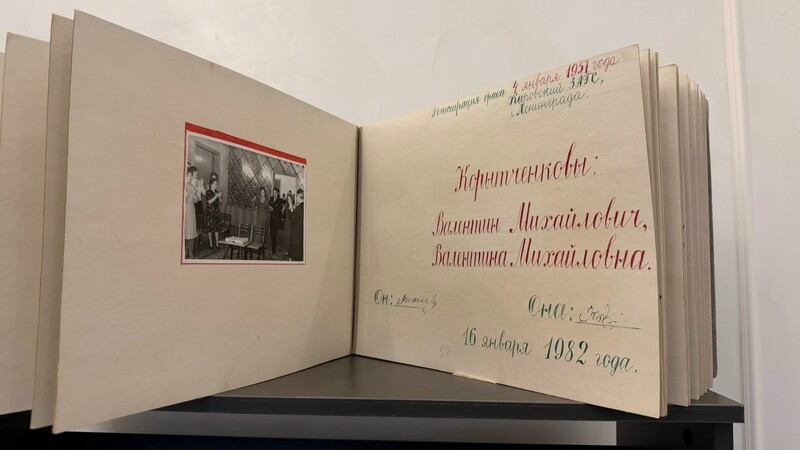 Регистрация брака 4 января 1951 года
Кировский ЗАГС,
г. Ленинграда.
Корытченковы:
Валентин Михайлович,
Валентина Михайловна.
Он:
Она:
16 января 1982 года.